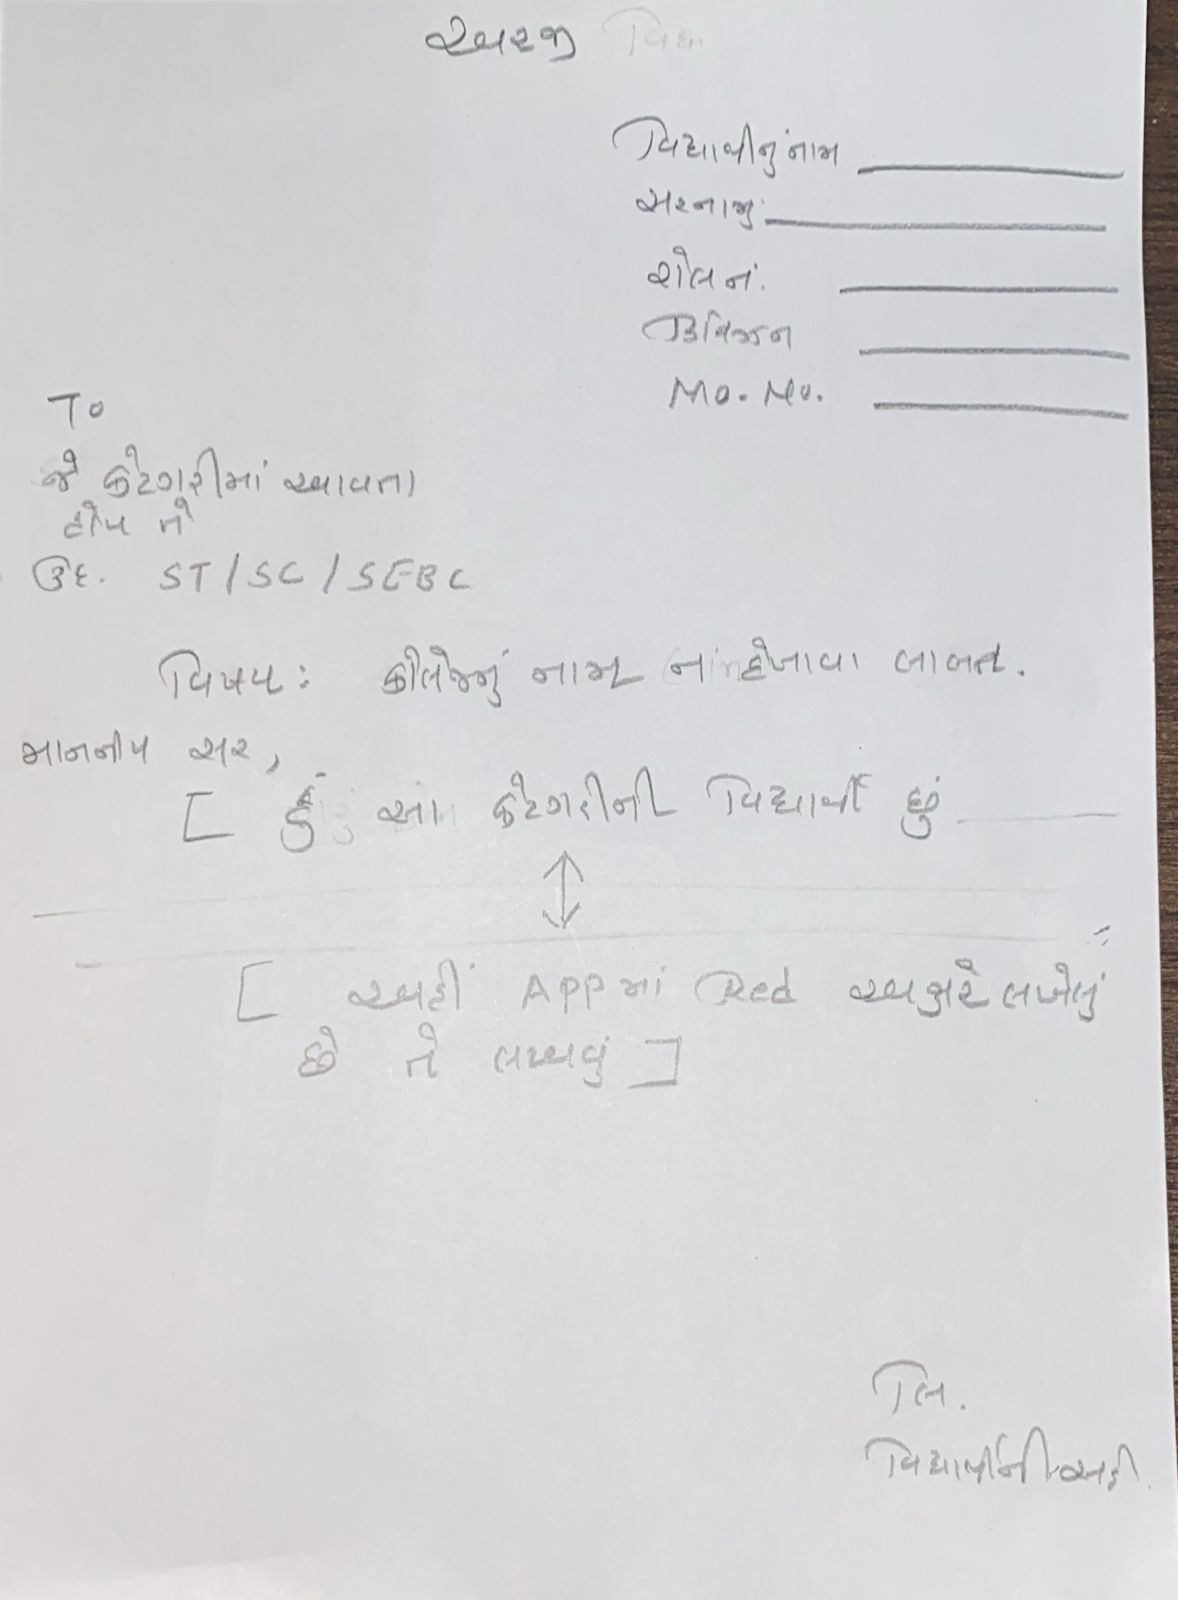 અરજી
વિદ્યાર્થીનું નામ
સરનામું
રોલ નં.
ડિવિઝન
Mo. No.
To
જે કેટેગરીમાં આવતા
હોય તે
ઉદ. ST/SC/SEBC
વિષય: કોલેજનું નામ ના દેખાવા બાબત.
માનનીય સર,
[ હું આ કેટેગરીની વિદ્યાર્થી છું
[ અહીં APP માં Red અક્ષરે લખેલું
છે તે લખવું ]
લિ.
વિદ્યાર્થીની સહી.